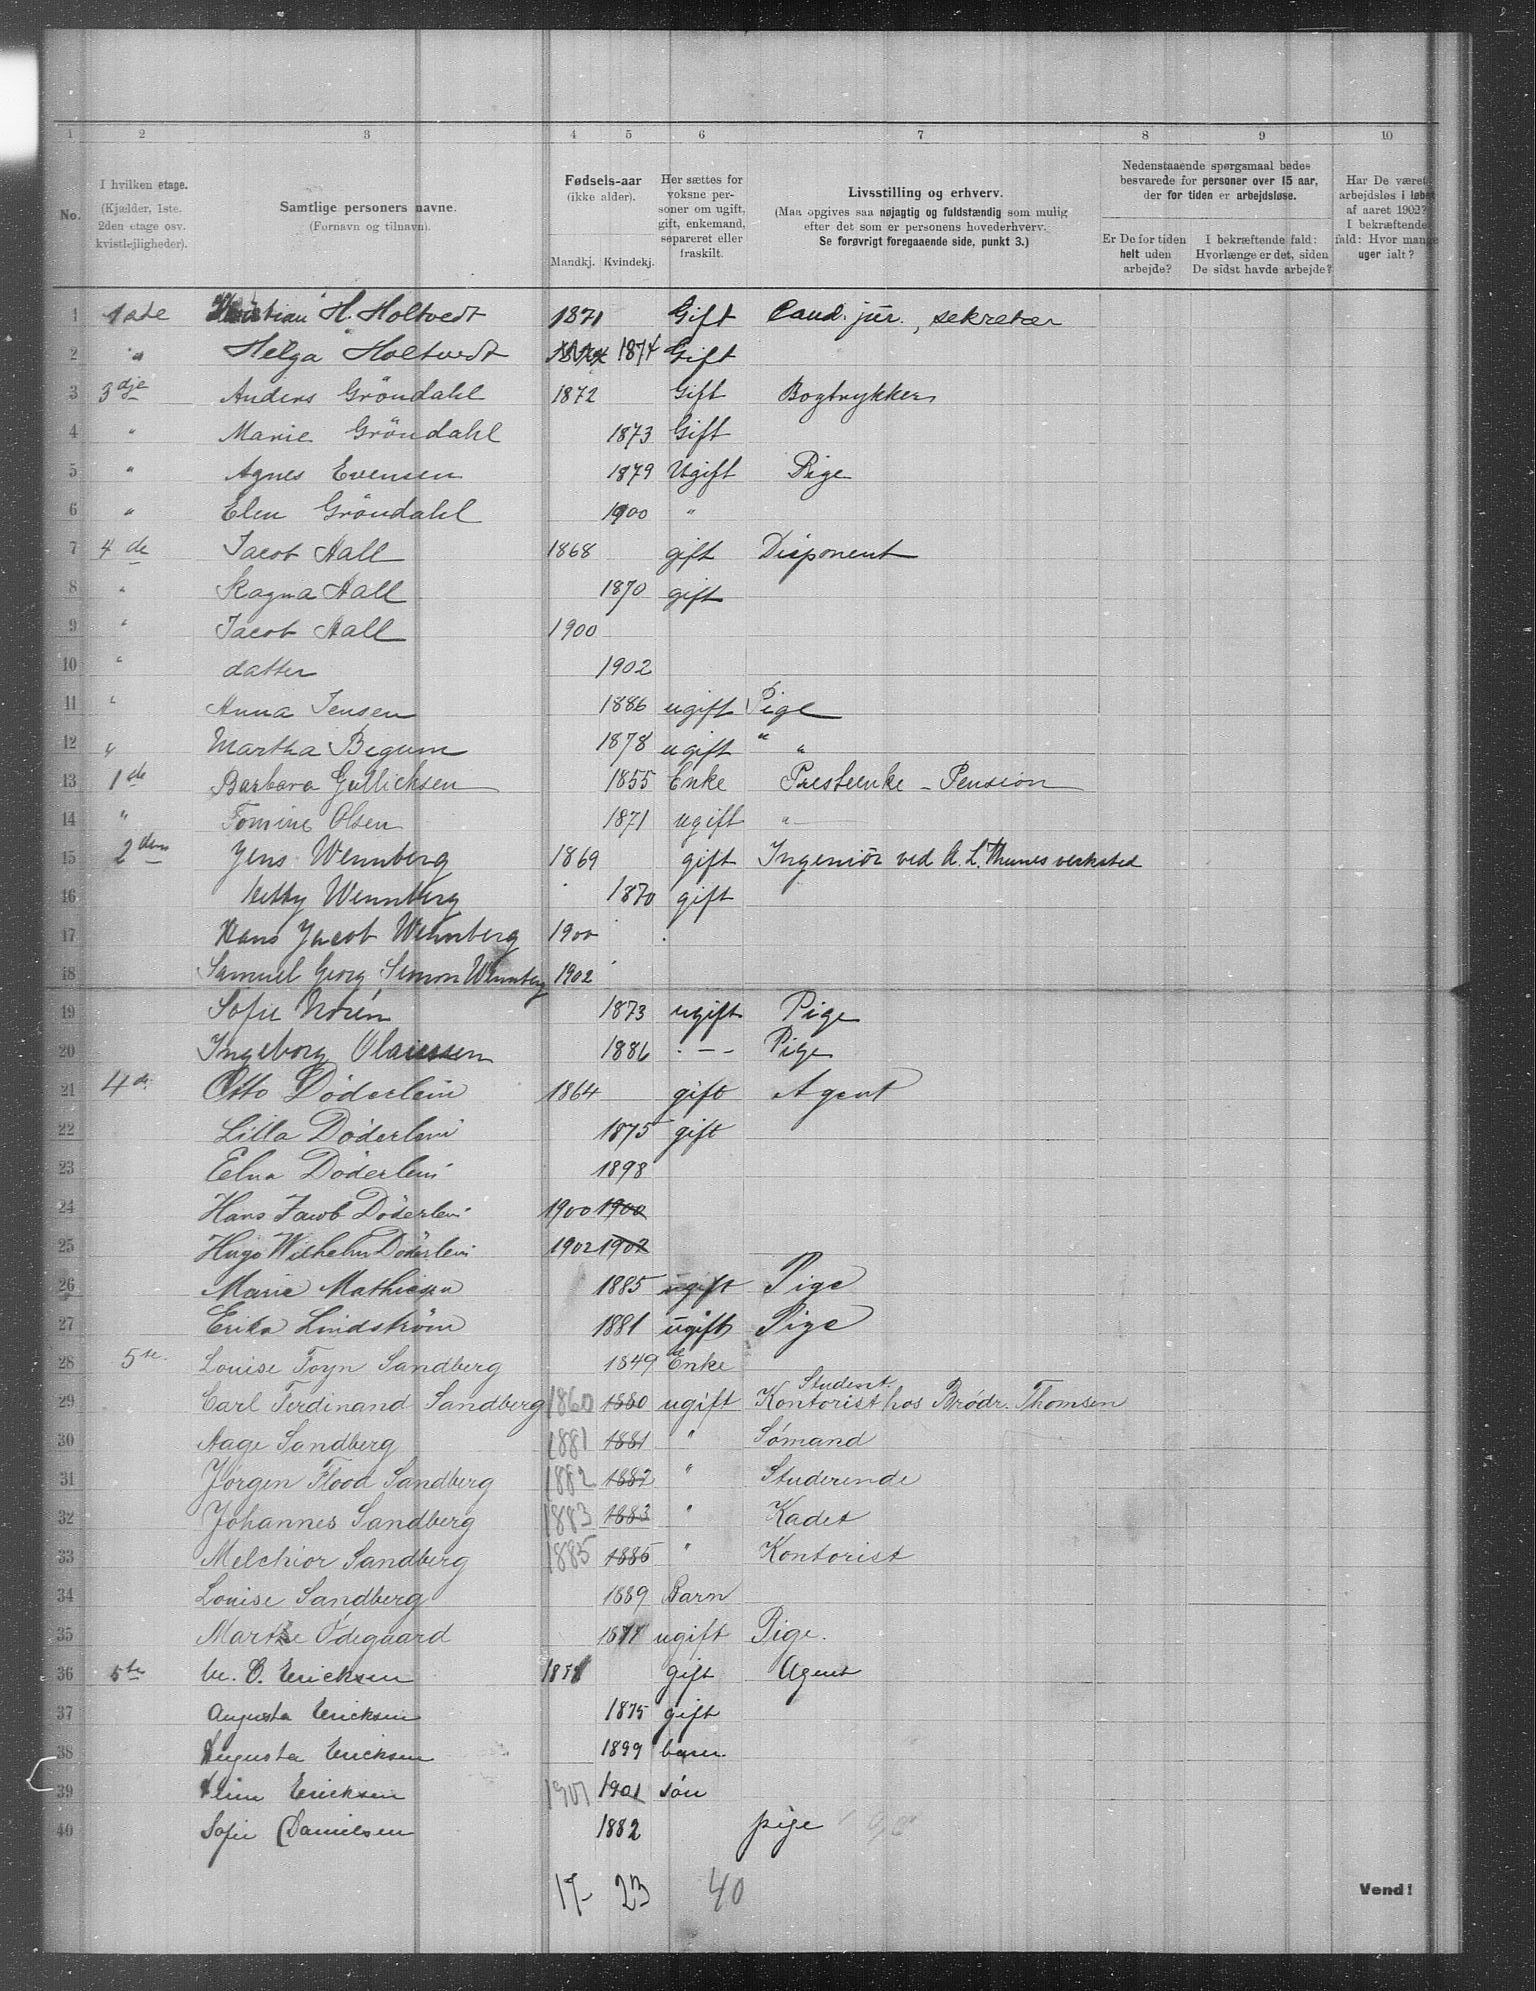 1 2 3 4 5 6 7 8 9 10
No.
I hvilken etage.
(Kjælder, 1ste, 2den etage osv. kvistlejligheder).
Samtlige personers navne.
(Fornavn og tilnavn).
Fødsels-aar
(ikke alder).
Mandkj. Kvindekj.
Her sættes for voksne personer om ugift, gift, enkemand, separeret eller fraskilt.
Livsstilling og erhverv.
(Maa opgives saa nøjagtig og fuldstændig som mulig
efter det som er personens hovederhverv.
Se forøvrigt foregaaende side, punkt 3.)
Nedenstaaende spørgsmaal bedes
besvarede for personer over 15 aar,
der for tiden er arbejdsløse.
Er De for tiden helt uden arbejde?
I bekræftende fald: Hvorlænge er det, siden De sidst havde arbejde?
Har De været arbejdsløs i løbet af aaret 1902? I bekræftende fald: Hvor mange uger ialt?
1 1ste Kristian H. Holtvedt 1871 Gift Cand. jur., sekretær
2 " Helga Holtvedt 1874 Gift
3 3dje Anders Gröndahl 1872 Gift Bogtrykker
4 " Marie Gröndahl 1873 Gift
5 " Agnes Evensen 1879 Ugift Pige
6 " Elen Gröndahl 1900 "
7 4de Jacob Aall 1868 gift Disponent
8 " Ragna Aall 1870 gift
9 " Jacob Aall 1900
10 " datter 1902
11 " Anna Jensen 1886 ugift Pige
12 " Martha Begum 1878 ugift " "
13 1de Barbara Gullichsen 1855 Enke Presteenke - Pension
14 " Tomine Olsen 1871 ugift "
15 2den Jens Wennberg 1869 gift Ingeniör ved A. L. Thunes verksted
16 Hetty Wennberg 1870 gift
17 Hans Jacob Wennberg 1900
18 Samuel Georg Simon Wennberg 1902
19 Sofie Norén 1873 ugift Pige
20 Ingeborg Olaussen 1886 - - - Pige
21 4de Otto Döderlein 1864 gift Agent
22 Lilla Döderlein 1875 gift
23 Elna Döderlein 1898
24 Hans Jacob Döderlein 1900 1900
25 Hugo Wilhelm Döderlein 1902 1902
26 Marie Mathiesen 1885 ugift Pige
27 Erika Lindström 1881 ugift Pige
28 5te Louise Foyn Sandberg 1849 Enke
29 Carl Ferdinand Sandberg 1860 1880 ugift Student. Kontorist hos Brødr. Thomsen
30 Aage Sandberg 1881 1881 " Sömand
31 Jörgen Flood Sandberg 1882 1882 " Studerende
32 Johannes Sandberg 1883 1883 " Kadet
33 Melchior Sandberg 1885 1885 " Kontorist
34 Louise Sandberg 1889 Barn
35 Marthe Ödegaard 1877 ugift Pige.
36 5te C. Ericksen gift Agent
37 Augusta Ericksen 1875 gift
38 Augusta Ericksen 1899 barn
39 Ericksen 1901 1901 sön
40 Sofie Danielsen 1882 pige
17 - 23 40
Vend!